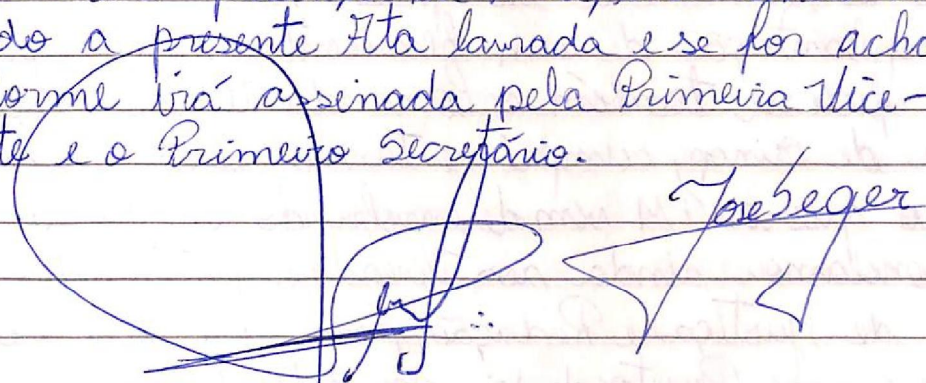 do a presente Ata lavrada e se for acha
orme irá assinada pela Primeira Vice-
te e o Primeiro Secretário.
José Seger